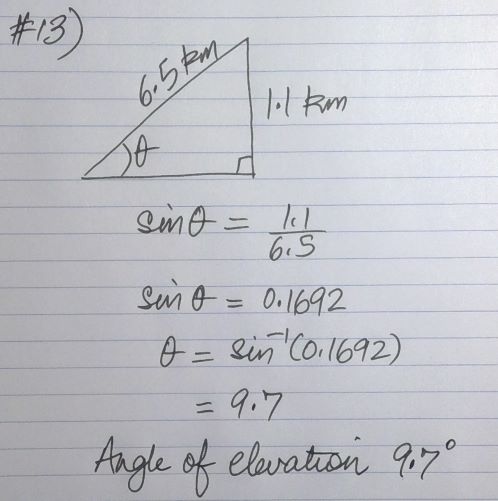 #13)
6.5 km
1.1 km
θ
sinθ = 1.1/6.5
sinθ = 0.1692
θ = sin⁻¹(0.1692)
= 9.7
Angle of elevation 9.7°